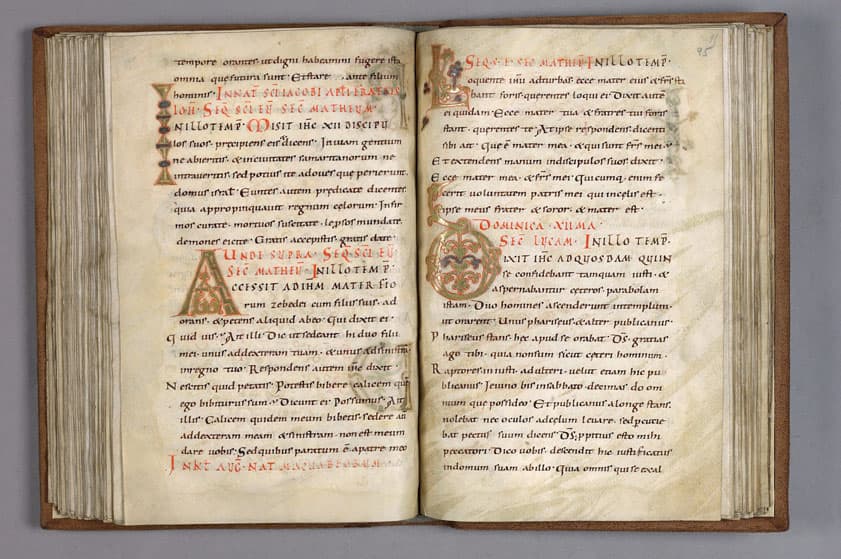 tempore orantes ut digni habeamini fugere ista
omnia que futura sunt. Et stare ante filium
hominis. IN NAT SCI IACOBI APLI FRATRIS
IOH. SEQ SCI EU SEC MATHEUM.
IN ILLO TEMP. Misit ihc XII discipu
los suos. precipiens eis dicens. In viam gentium
ne abieritis. & in civitates samaritanorum ne
intraveritis. sed potius ite ad oves que perierunt.
domus israł. Euntes autem predicate dicentes
quia appropinquavit regnum celorum. Infir
mos curate. mortuos suscitate. leprosos mundate.
demones eicite. Gratis accepistis. gratis date.
UNDE SUPRA. SEQ SCI EU
SEC MATHEU. IN ILLO TEMP.
ACCESSIT AD IHM MATER FILIO
rum zebedei cum filiis suis. ad
orans. & petens aliquid ab eo. Qui dixit ei.
Quid vis. Ait illi. Dic ut sedeant hi duo filii
mei. unus ad dexteram tuam. & unus ad sinistram
in regno tuo. Respondens autem ihc dixit.
Nescitis quid petatis. Potestis bibere calicem que
ego bibiturus sum. Dicunt ei. Possumus. Ait
illis. Calicem quidem meum bibetis. sedere au
ad dexteram meam & sinistram. non est meum
dare vobis. Sed quibus paratum e a patre meo
IN KL AUG. NAT MACHABEORUM
95
SEQ S. E. SEC MATHEU. IN ILLO TEMP.
Loquente ihu ad turbas. ecce mater eius & frs sta
bant foris. querentes loqui ei. Dixit aute
ei quidam. Ecce mater tua. & fratres tui foris
stant. querentes te. At ipse respondens dicenti
sibi ait. Que e mater mea. & qui sunt frs mei.
Et extendens manum in discipulos suos dixit.
Ecce mater mea. & frs mei. Quicumq. enim fe
cerit voluntatem patris mei qui in celis est.
ipse meus frater & soror. & mater est.
DOMINICA XII MA
SEC LUCAM. IN ILLO TEMP.
DIXIT IHC AD QUOSDAM QUI IN
se confidebant tamquam iusti. &
aspernabantur ceteros. parabolam
istam. Duo homines ascenderunt in templum.
ut orarent. Unus phariseus. & alter publicanus.
Phariseus stans. hec apud se orabat. Ds. gratias
ago tibi. quia non sum sicut ceteri hominum.
Raptores. iniusti. adulteri. velut etiam hic pu
blicanus. Ieiuno bis in sabbato. decimas do om
nium que possideo. Et publicanus a longe stans.
nolebat nec oculos ad celum levare. sed percutie
bat pectus suum dicens. Ds. ppitius esto mihi
peccatori. Dico vobis. descendit hic iustificatus
in domum suam ab illo. Quia omnis qui se exal